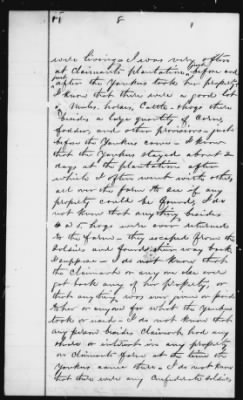 11 8 1
were living I was very often
at Claimants plantation before and
just after the Yankees took her property
I know that there were a good lot
of Mules, horses, Cattle & hogs there
besides a large quantity of Corn,
fodder, and other provisions - just
before the Yankees came - I know
that the Yankees stayed about 2
days at the plantation after
which I often went with others
all over the farm to see if any
property could be found, I do
not know that anything besides
4 or 5 hogs were ever returned
to the farm - they escaped from the
Soldiers and found their way back
I suppose - I do not know that
the Claimant or any one else ever
got back any of her property, or
that anything was ever given or paid
to her or anyone for what the Yankees
took or used - I do not know that
any person besides Claimant had any
share or interest in any property
on Claimants farm at the time the
Yankees came there - I do not know
that there were any Confederate Soldiers